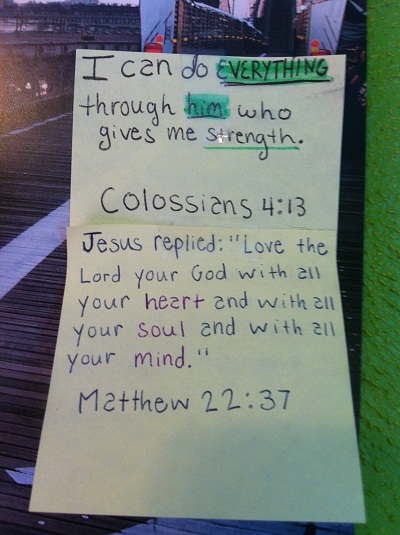 I can do EVERYTHING
through him who
gives me strength.
Colossians 4:13
Jesus replied: "Love the
Lord your God with all
your heart and with all
your soul and with all
your mind."
Matthew 22:37